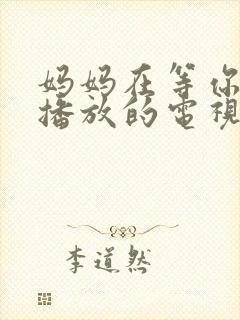 妈妈在等你
播放的電視
李道然